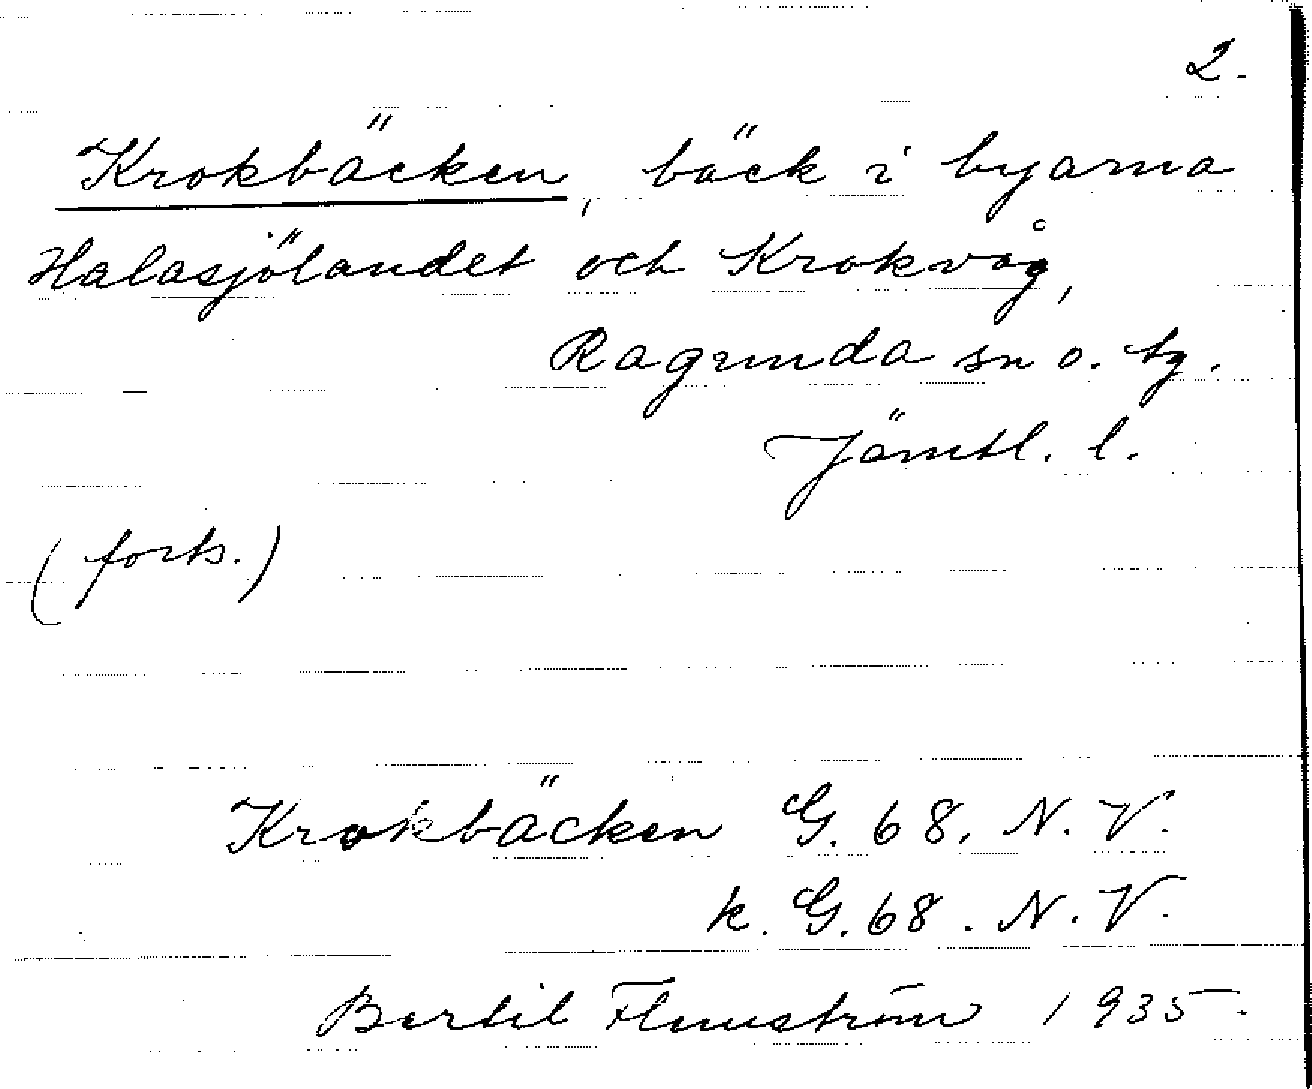 2.
Krokbäcken, bäck i byarna
Halasjölandet och Krokvåg,
Ragunda sn o. tg.
Jämtl. l.
(forts.)
Krokbäcken G. 68. N. V.
k. G. 68. N. V.
Bertil Flemström 1935.